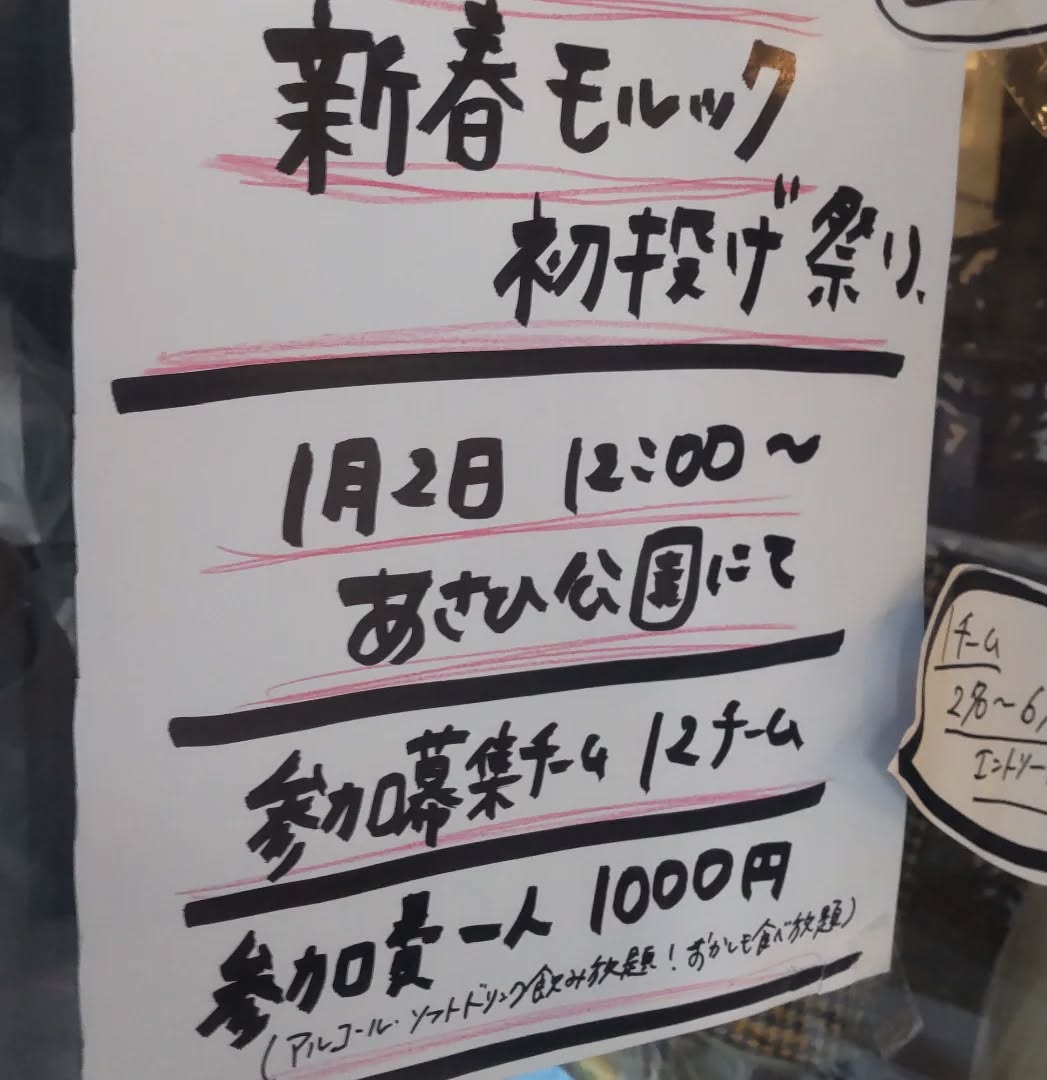 新春モルック
初投げ祭り
1月2日 12:00〜
あさひ公園にて
参加募集チーム 12チーム
参加費一人 1000円
(アルコール・ソフトドリンク飲み放題!おかしも食べ放題)
1チーム
2名〜6
エントリー